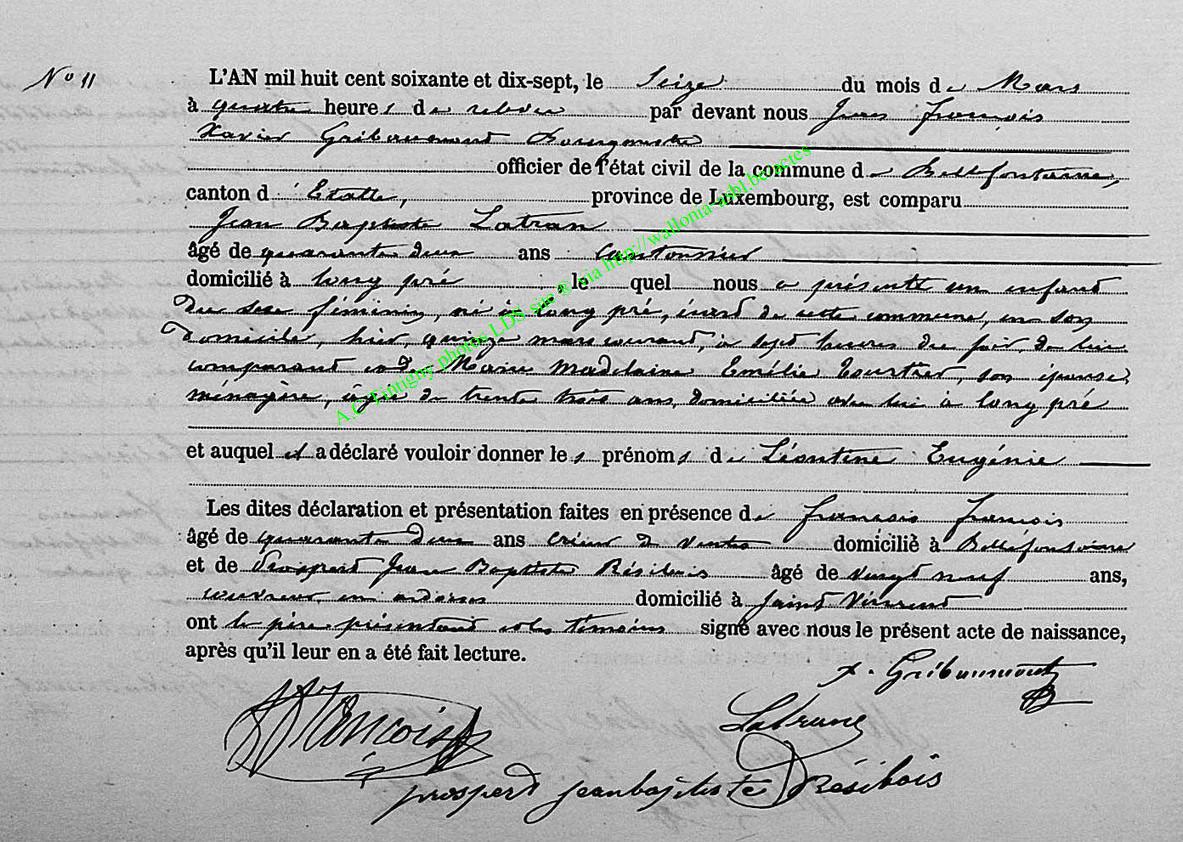 N° 11
L'AN mil huit cent soixante et dix-sept, le Seize du mois de Mars
à quatre heures de relevée par devant nous Jean François
Xavier Gribaumont Bourgmestre
officier de l'état civil de la commune de Bellefontaine,
canton d' Etalle, province de Luxembourg, est comparu
Jean Baptiste Latran
âgé de quarante deux ans cantonnier
domicilié à long pré, le quel nous a présenté un enfant
du sexe féminin, né à long pré, écart de cette commune, en son
domicile, hier, quinze mars courant, à sept heures du soir, de lui
comparant et de Marie Madelaine Emélie Tourtier, son épouse,
ménagère, âgée de trente trois ans, domiciliée avec lui à long pré
et auquel il a déclaré vouloir donner les prénoms de Léontine Eugénie
Les dites déclaration et présentation faites en présence de françois françois
âgé de quarante deux ans crieur de ventes domicilié à Bellefontaine
et de Prosperd Jean Baptiste Résibois âgé de vingt neuf ans,
couvreur en ardoises domicilié à Saint Vincent
ont le père présentant et les témoins signé avec nous le présent acte de naissance,
après qu'il leur en a été fait lecture.
x. Gribaumont
françois Latrane
prosperd jeanbaptiste Résibois
A.C. Tintigny photos LDS site @ via http://wallonia-asbl.be/actes